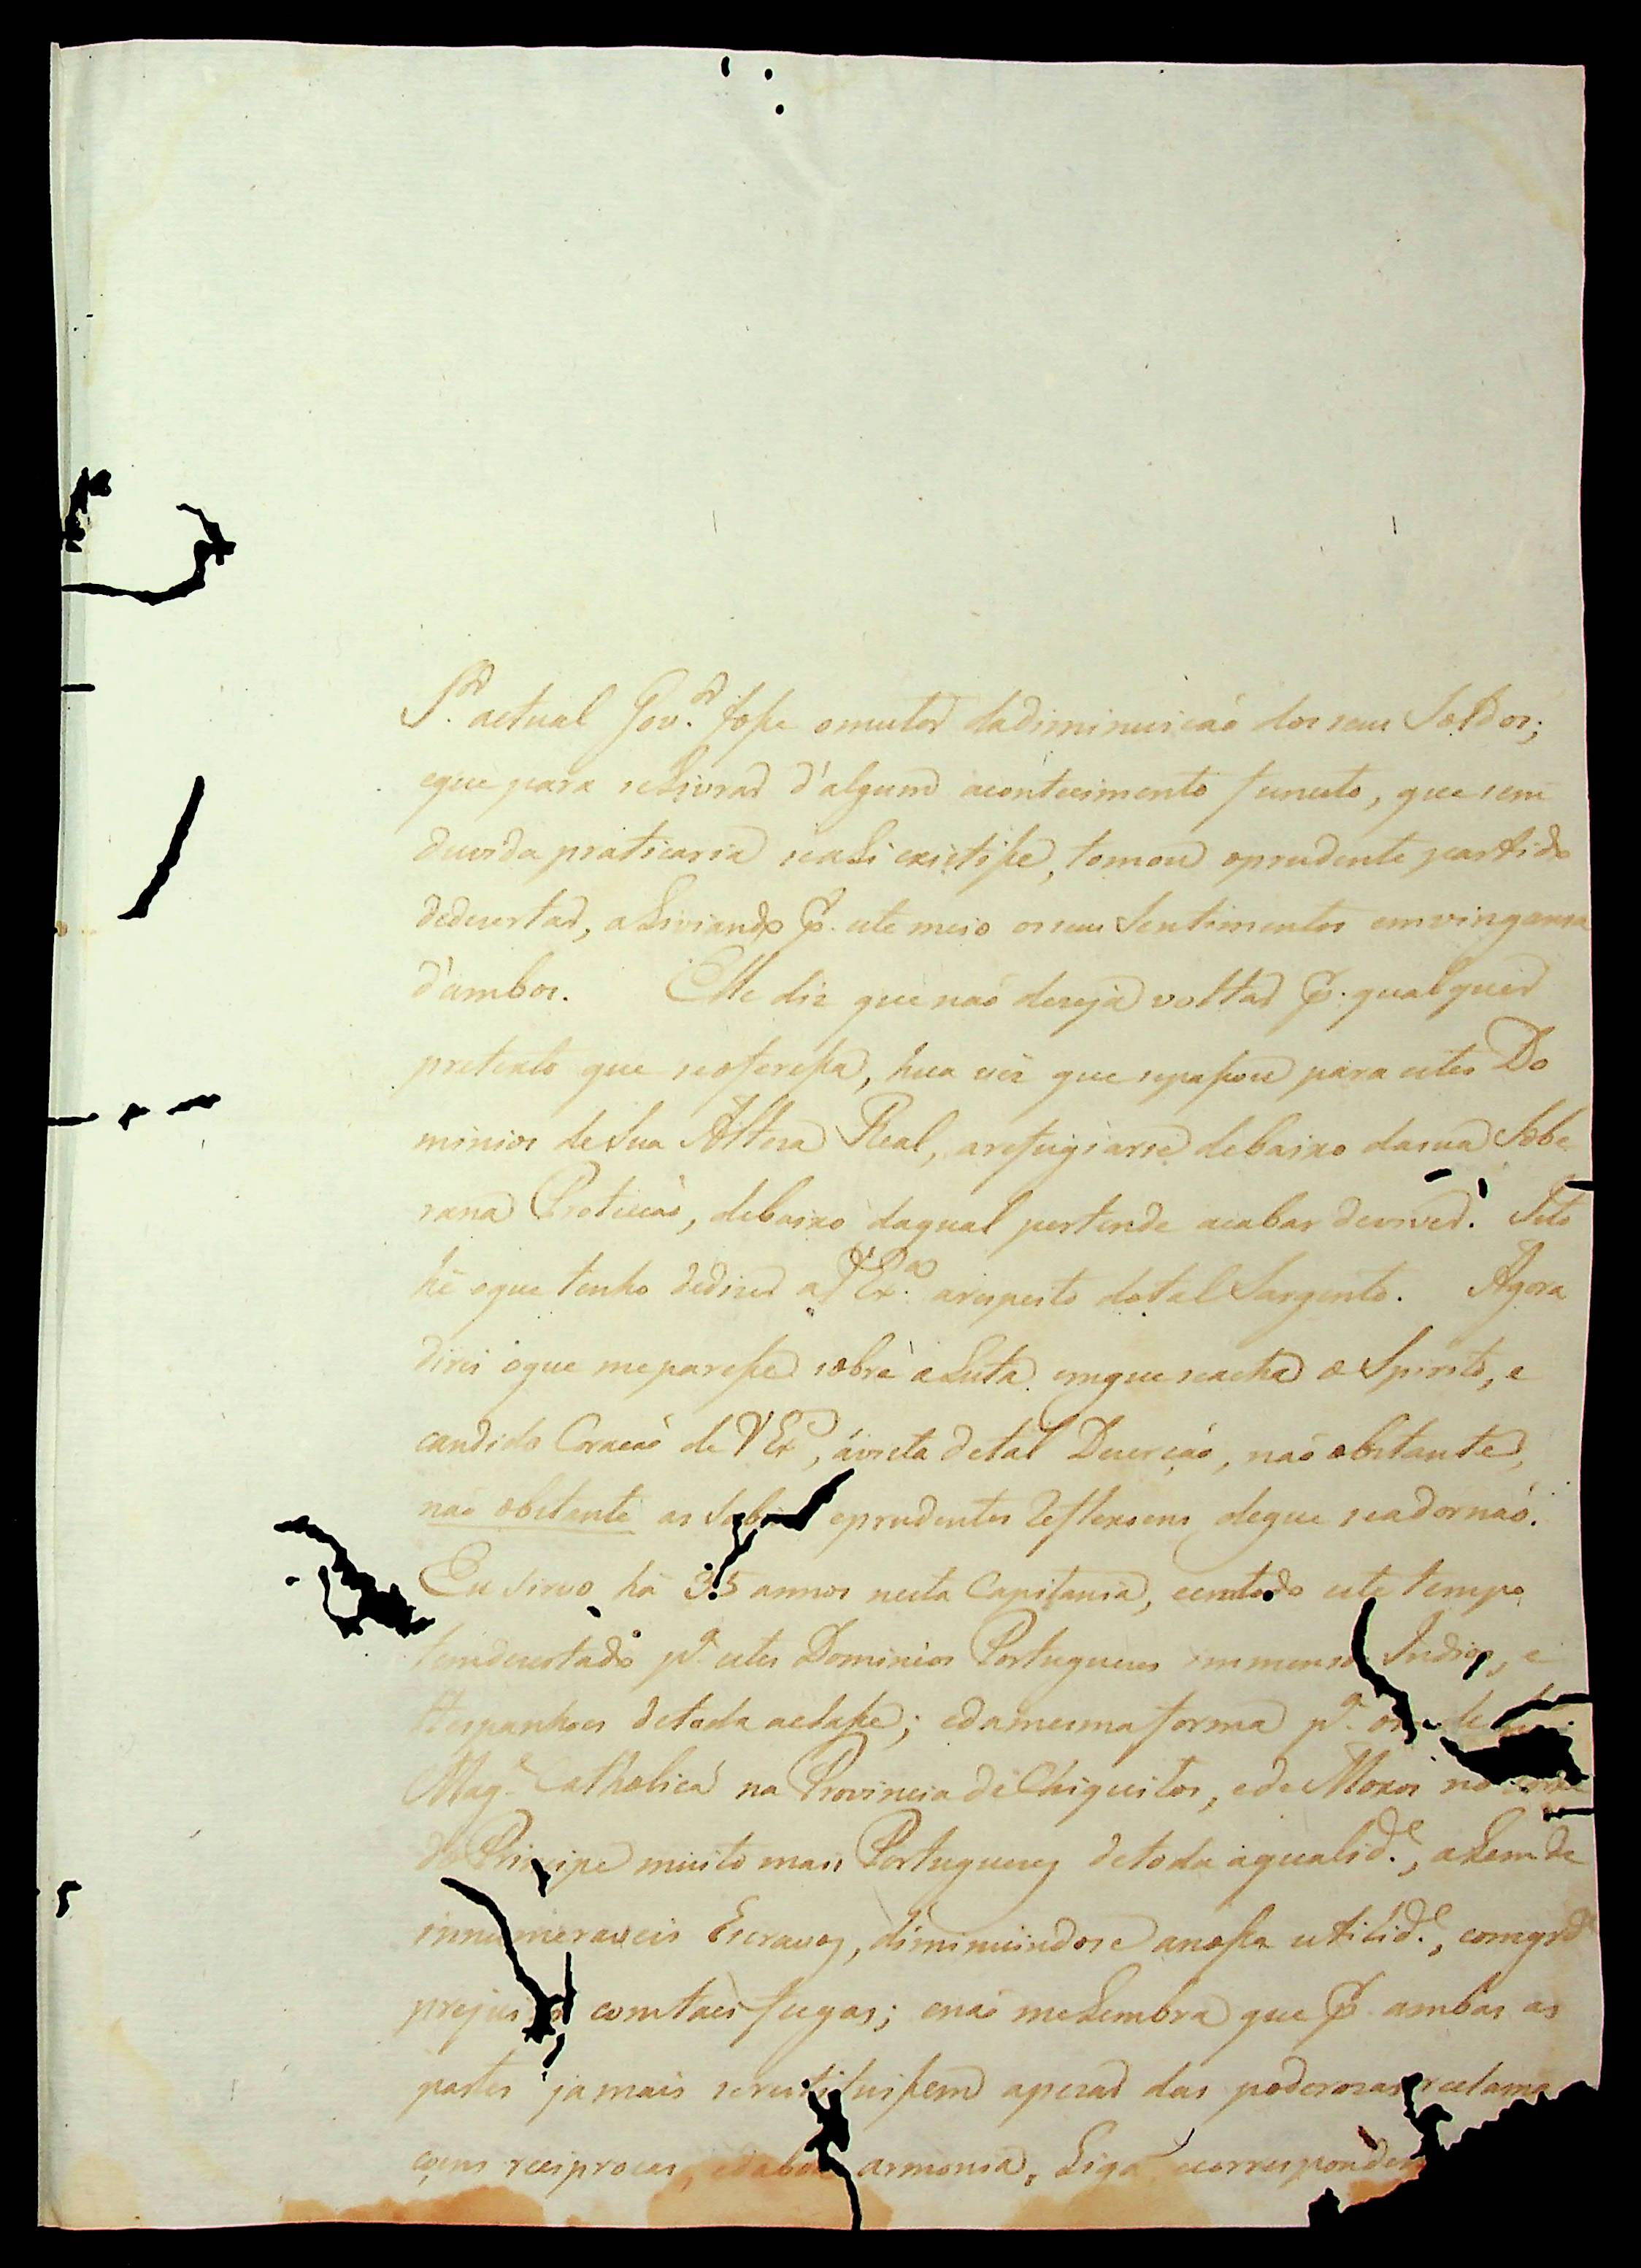 S.or actual Gov.or fosse o mutor dadiminuicaó dos seus Soldos;
eque para seLivrar d'algum acontecimento funesto, que sem
duvida praticaria seali existisse, tomou oprudente partido
dedesertar, aLiviando p. este meio osseus Sentimentos emvingansa
d'ambos. Elle diz que naó deseja voltar p. qualquer
pretexto que seoferessa, hua vez que sepassou para estes Do
minios de Sua Alteza Real, arefugiarse debaixo dasua Sobe
rana Protecáo, debaixo daqual pertende acabar deviver. Isto
hé oque tenho dedizer a V Ex.a arespeito dotal Sargento. Agora
direi oque meparesse sobre aLuta emque seacha o Spirito, e
candido Coracaó de V Ex.a, ávista detal Deserçáo, naó obstante,
naó obstante as Sabias eprudentes Reflexoens deque seadornaó.
Eu sirvo há 35 annos nesta Capitania, eemtodo este tempo
temdesertado p.a estes Dominios Portuguezes immensos Indios, e
Hespanhoes detoda aclasse; edamesma forma p.a os de Sua
Mag.e Catholica na Provincia de Chiquitos, ede Moxos no
do Principe muito mais Portuguezes detoda aqualid.e, aLem de
innumeraveis Escravos, diminuindose anossa utilid.e, comgrd.e
prejuizo comtaes fugas; enaó meLembra que p. ambas as
partes jamais serestituissem apezar das poderozas reclama
çoens reciprocas, edaboa armonia, Liga ecorresponden